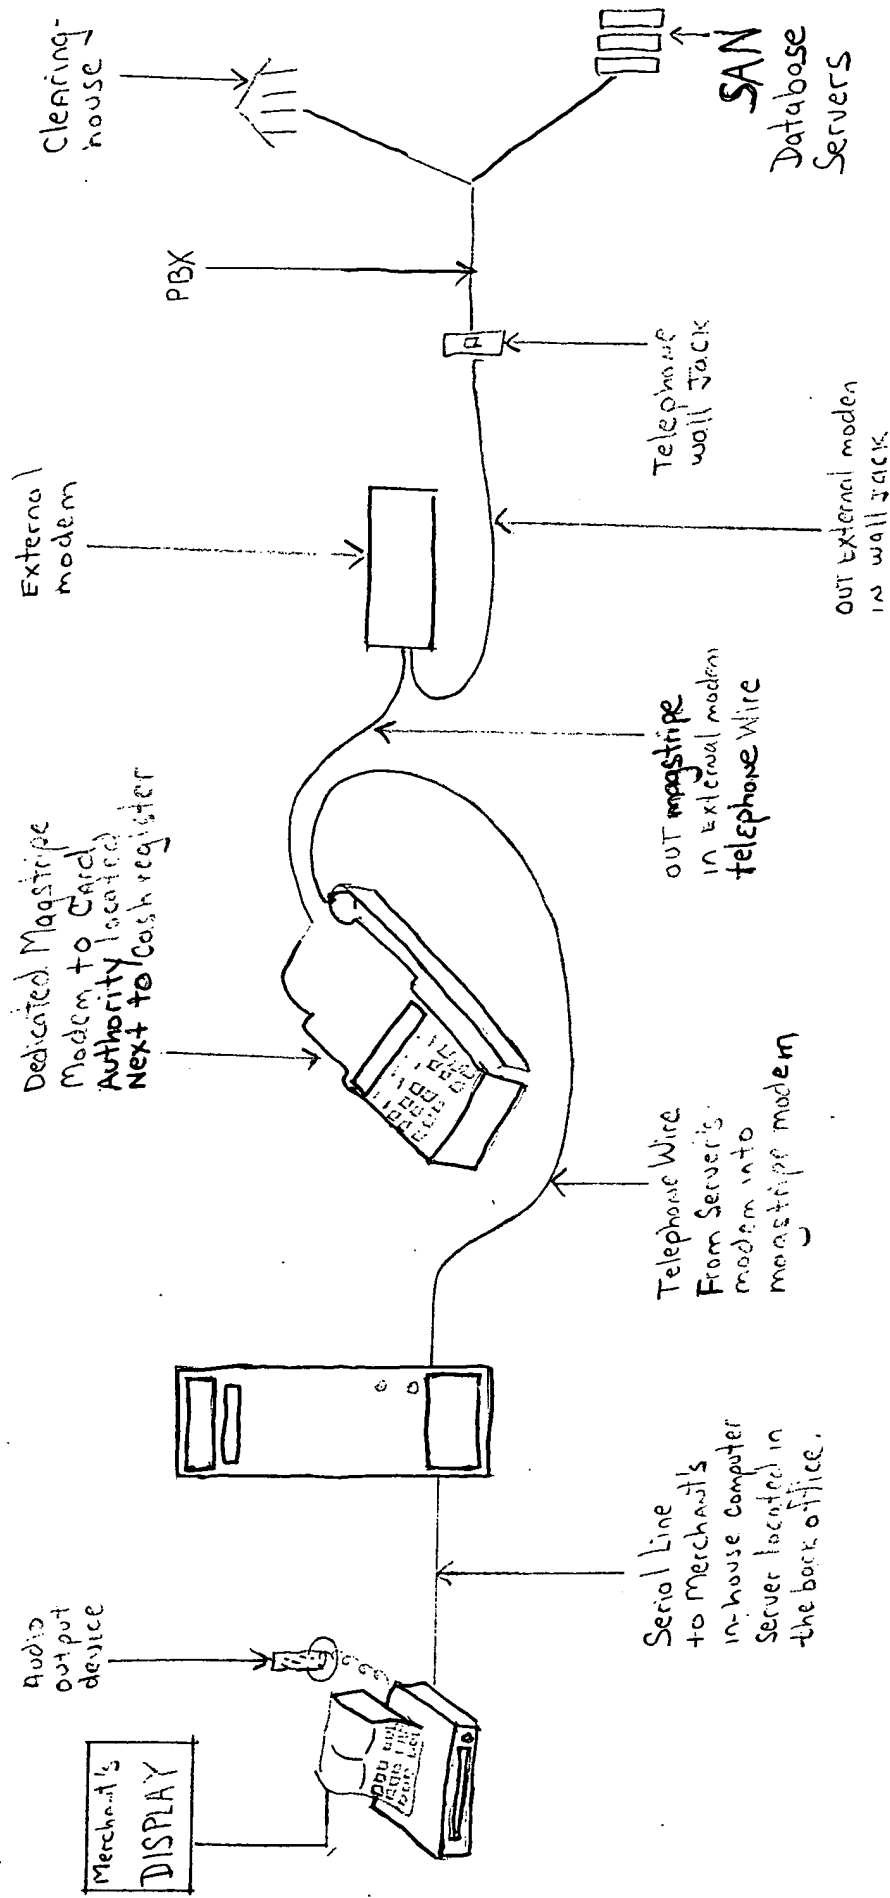 Merchant's
DISPLAY
Audio
output
device
Serial Line
to Merchant's
in-house computer
Server located in
the back office.
Telephone Wire
From Server's
modem into
magstripe modem
Dedicated Magstripe
Modem to Card
Authority located
Next to Cash register
OUT magstripe
in External modem
telephone Wire
External
modem
OUT External modem
IN wall jack
Telephone
wall Jack
PBX
Clearing-
house
SAN
Database
Servers